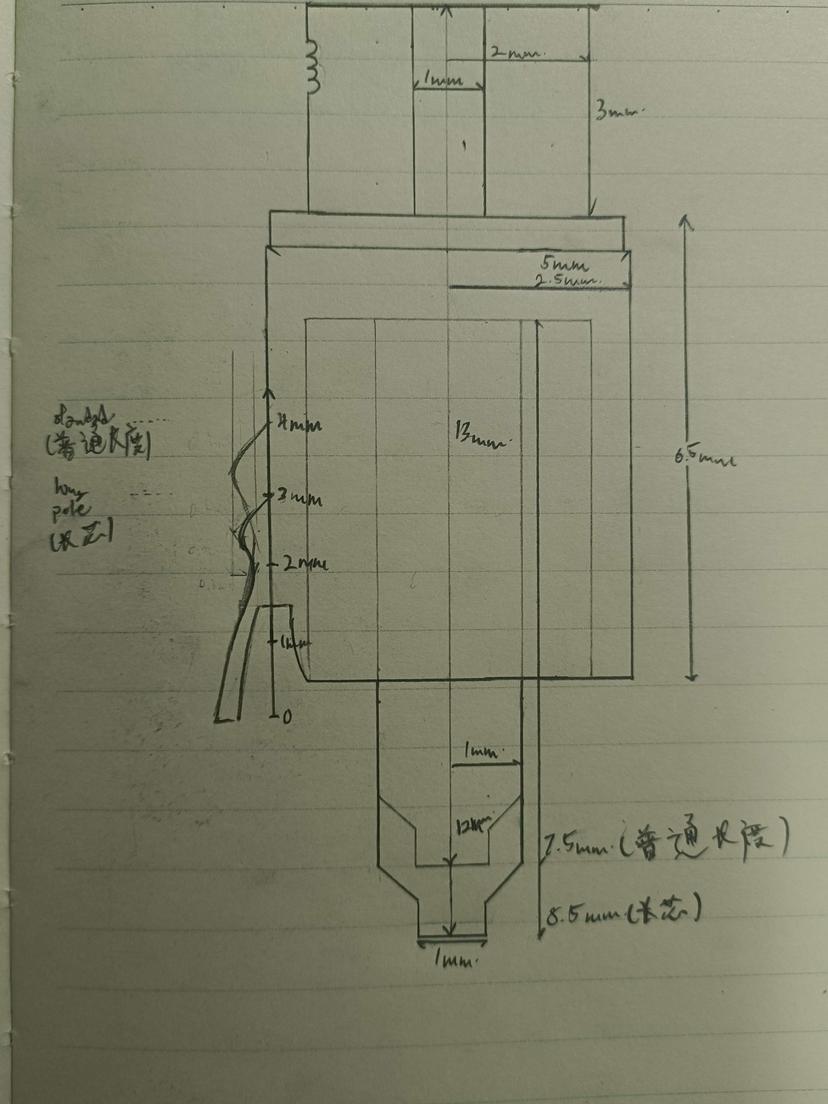 2mm.
1mm
3mm.
5mm
2.5mm.
4mm
13mm.
(普通长度)
6.5mm
long
pole
3mm
(长芯)
2mm
1mm
0
1mm.
12mm
7.5mm.(普通长度)
8.5mm(长芯)
1mm.